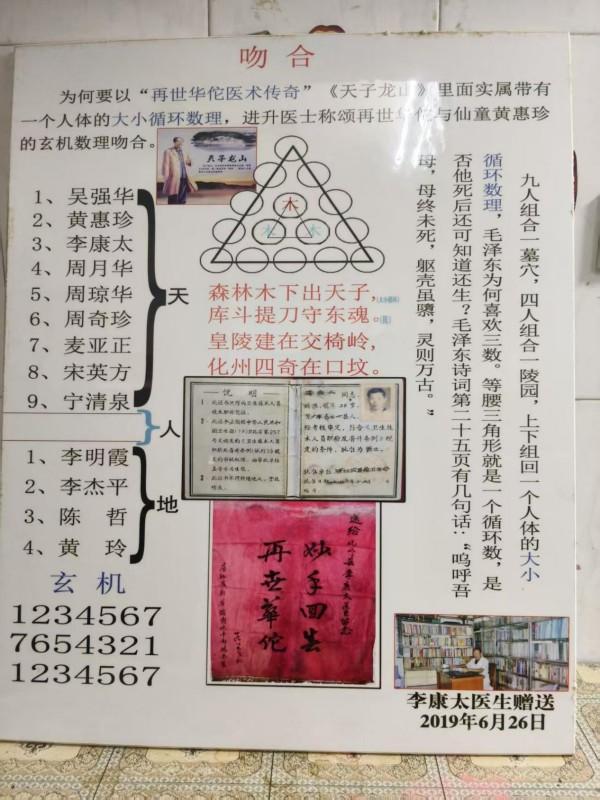 吻合
为何要以“再世华佗医术传奇”《天子龙山》里面实属带有
一个人体的大小循环数理，进升医士称颂再世华佗与仙童黄惠珍
的玄机数理吻合。
天子龙山
1、吴强华
2、黄惠珍
3、李康太
4、周月华
5、周琼华
6、周奇珍
7、麦亚正
8、宋英方
9、宁清泉
天
人
1、李明霞
2、李杰平
3、陈 哲
4、黄 玲
地
玄机
1234567
7654321
1234567
木
木 木
森林木下出天子，
库斗提刀守东魂。
皇陵建在交椅岭，
化州四奇在口坟。
九人组合一墓穴，四人组合一陵园，上下组回一个人体的大小
循环数理，毛泽东为何喜欢三数。等腰三角形就是一个循环数，是
否他死后还可知道还生？毛泽东诗词第二十五页有几句话：“呜呼吾
母，母终未死，躯壳虽隳，灵则万古。”
说明
妙手回生
再世华佗
李康太医生赠送
2019年6月26日